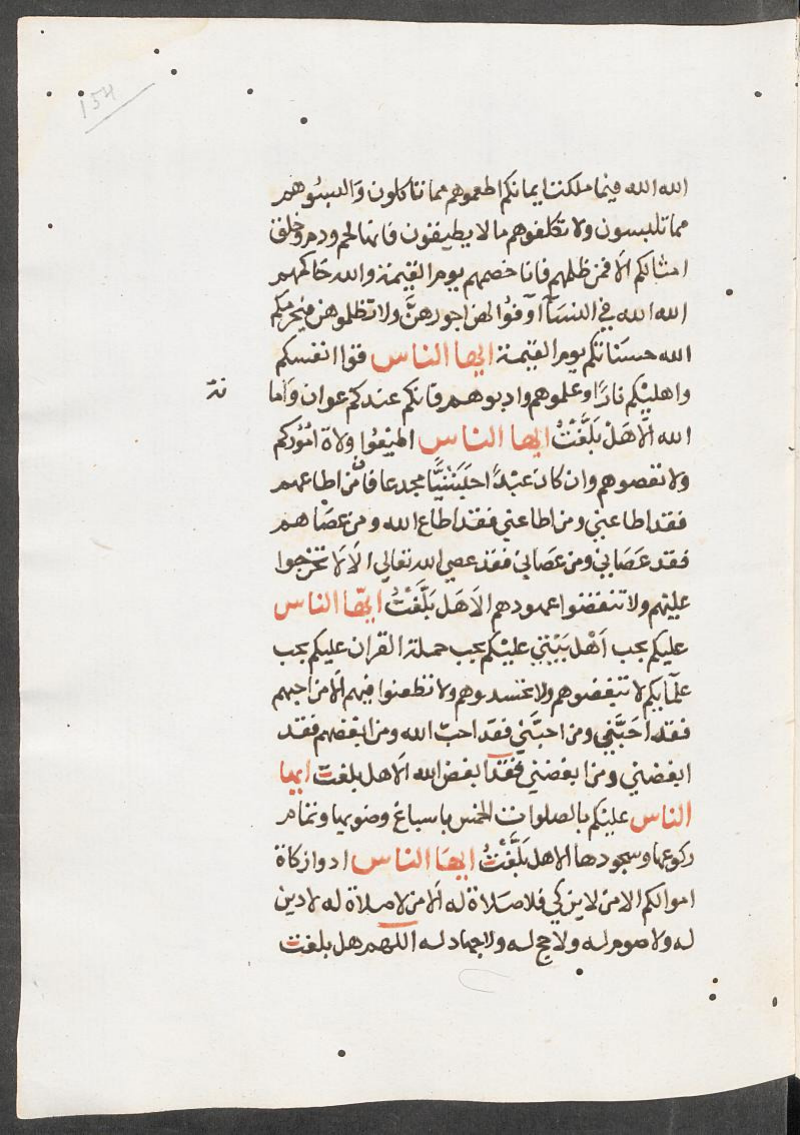 154
الله الله فيما ملكت ايمانكم اطعموهم مما تاكلون والبسوهم
مما تلبسون ولا تكلفوهم ما لا يطيقون فانها لحم ودم وخلق
امثالكم الا فمن ظلمهم فانا خصمهم يوم القيمة والله حاكمهم
الله الله في النسآ اوفوا لهن اجورهن ولا تظلموهن فيحرمكم
الله حسناتكم يوم القيمة ايها الناس قوا انفسكم
واهليكم نارا وعلموهم وادبوهم فانكم عندكم عوان واما
الله الا هَلْ بَلَّغْتُ ايها الناس اطيعوا ولاة اموركم
ولا تعصوهم وان كان عبدًا حبشيًّا مجدعا فانّ من اطاعهم
فقد اطاعني ومن اطاعني فقد اطاع الله ومن عصاهم
فقد عَصَاني ومن عصاني فقد عصي الله تعالي الا لا تخرجوا
عليهم ولا تنقضوا عهودهم الا هَل بَلَّغْتُ ايها الناس
عليكم بحب اَهْل بَيْتي عليكم بحب حملة القران عليكم بحب
علمآيكم لا تبغضوهم ولا تحسدوهم ولا تطعنوا فيهم الا من احبهم
فقد احَبَّني ومن احبَّني فقد احبّ الله ومن ابغضهم فقد
ابغضني ومن ابغضني فقد ابغض الله الا هل بلغت ايها
الناس عليكم بالصلوات الخمس باسباغ وضويها وتمام
ركوعها وسجودها الا هل بَلَّغْتُ ايها الناس ادوا زكاة
اموالكم الا من لا يزكي فلا صلاة له الا من لا صلاة له لا دين
له ولا صوم له ولا حج له ولا جهاد له اللهم هل بلغت